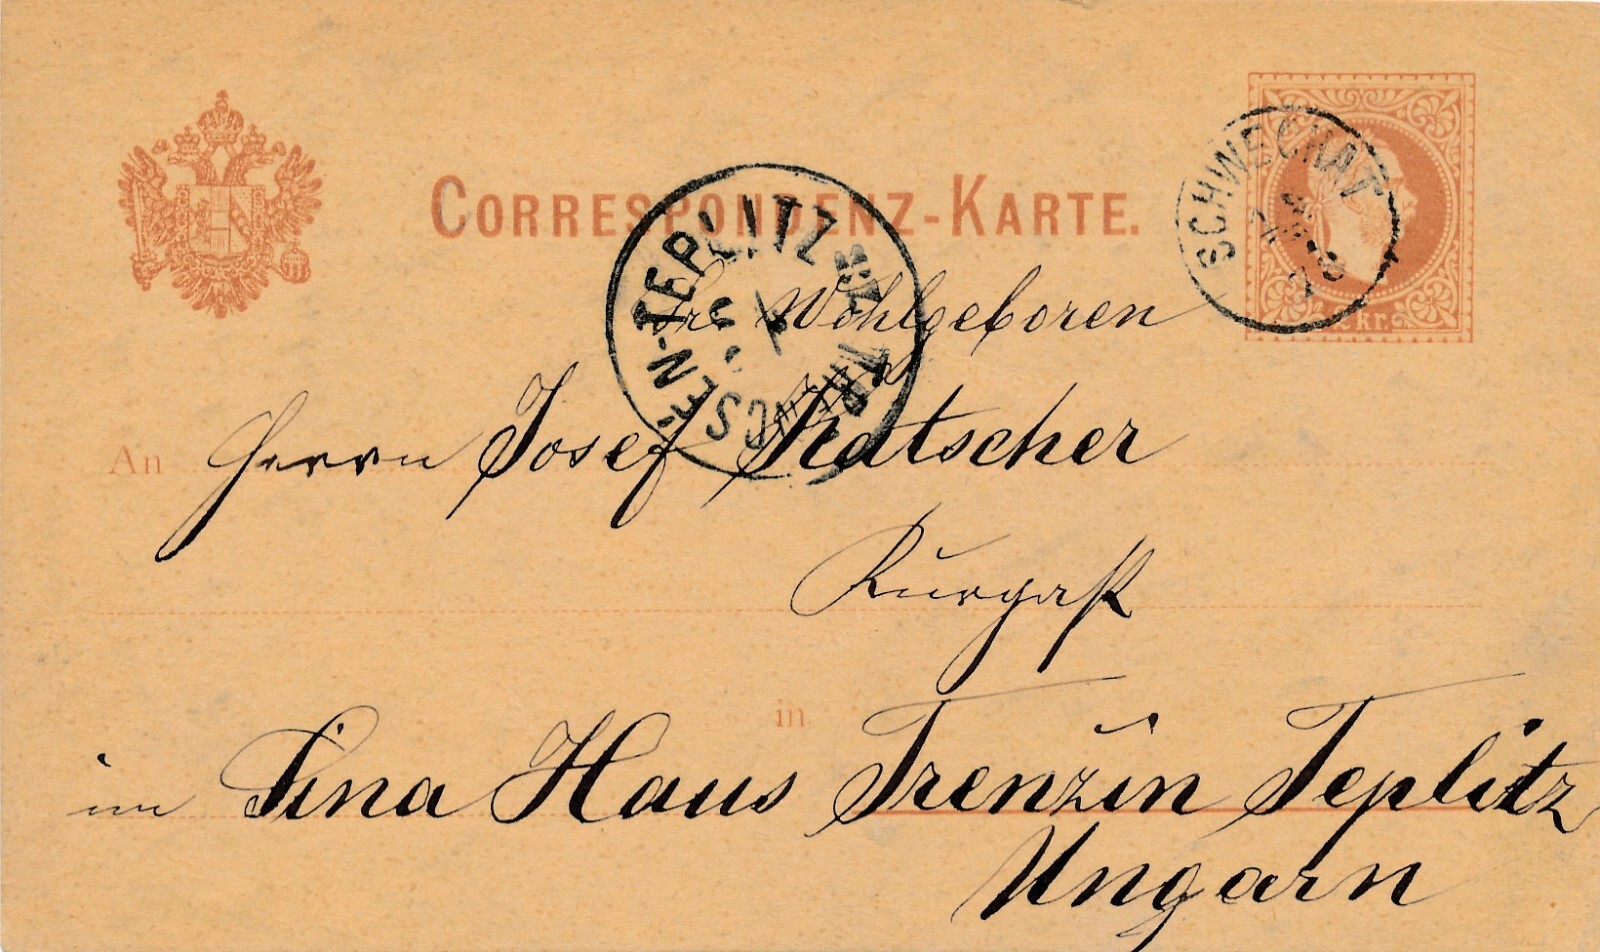 CORRESPONDENZ-KARTE.
SCHWECHAT
2 kr.
TRENCSÉN-TEPLITZ
Sr. Wohlgeboren
An Herrn Josef Katscher
Kurgast
in
im Sina Haus Trenzin Teplitz
Ungarn